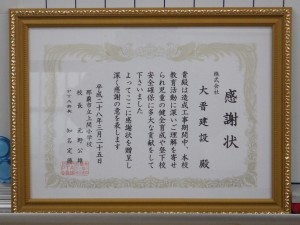 感謝状
株式会社
大晋建設 殿
貴殿は造成工事期間中、本校
教育活動に深いご理解を寄せ
られ児童の健全育成や登下校
安全確保に多大な貢献をして
下さいました
よってここに感謝状を贈呈し
深く感謝の意を表します
平成二十八年三月二十五日
那覇市立上間小学校
校長